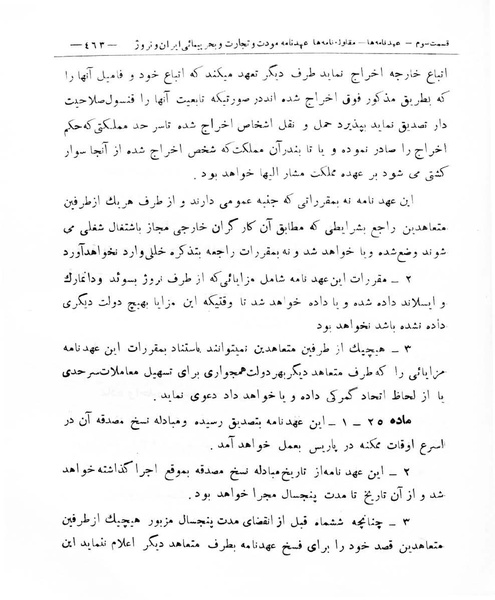 قسمت سوم – عهدنامه‌ها – مقاوله‌نامه‌ها عهدنامه مودت و تجارت و بحرپیمائی ایران و نروژ –۴۶۳–
اتباع خارجه اخراج نماید طرف دیگر تعهد میکند که اتباع خود و فامیل آنها را
که بطریق مذکور فوق اخراج شده انددر صورتیکه تابعیت آنها را قنسول صلاحیت
دار تصدیق نماید بپذیرد حمل و نقل اشخاص اخراج شده تا سر حد مملکتی که حکم
اخراج را صادر نموده و یا تا بندرآن مملکت که شخص اخراج شده از آنجا سوار
کشتی می شود بر عهده مملکت مشار الیها خواهد بود .
این عهد نامه نه بمقرراتی که جنبه عمومی دارند و از طرف هریك ازطرفین
متعاهدین راجع بشرایطی که مطابق آن کارگران خارجی مجاز باشتغال شغلی می
شوند وضع شده و یا خواهد شد و نه بمقررات راجعه بتذکره خللی وارد نخواهدآورد
۲ – مقررات این عهد نامه شامل مزایائی که از طرف نروژ بسوئد و دانمارك
و ایسلاند داده شده و یا داده خواهد شد تا وقتیکه این مزایا بهیچ دولت دیگری
داده نشده باشد نخواهد بود
۳ – هیچیك از طرفین متعاهدین نمیتوانند باستناد بمقررات این عهدنامه
مزایائی را که طرف متعاهد دیگر بهر دولت همجواری برای تسهیل معاملات سرحدی
یا از لحاظ اتحاد گمرکی داده و یا خواهد داد دعوی نماید .
ماده ۲۵ – ۱ – این عهدنامه بتصدیق رسیده ومبادله نسخ مصدقه آن در
اسرع اوقات ممکنه در پاریس بعمل خواهد آمد .
۲ – این عهد نامه از تاریخ مبادله نسخ مصدقه بموقع اجرا گذاشته خواهد
شد و از آن تاریخ تا مدت پنجسال مجرا خواهد بود .
۳ – چنانچه ششماه قبل از انقضای مدت پنجسال مزبور هیچیك ازطرفین
متعاهدین قصد خود را برای فسخ عهدنامه بطرف متعاهد دیگر اعلام ننماید این